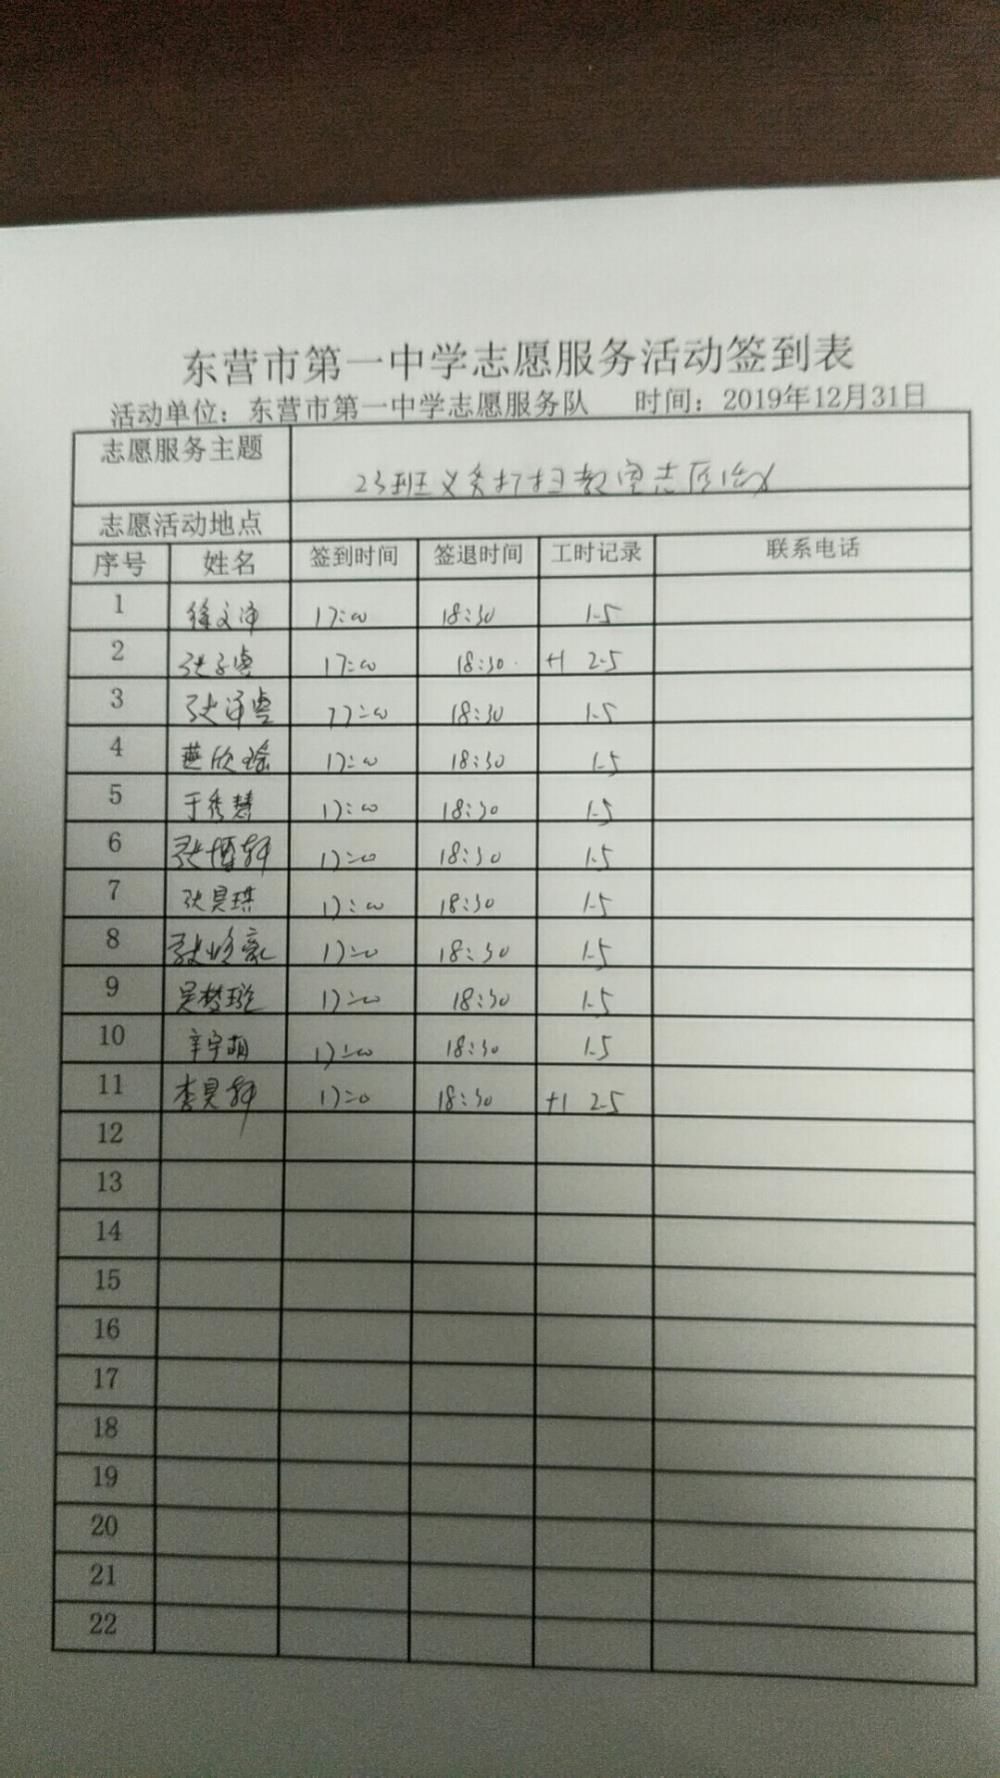 东营市第一中学志愿服务活动签到表
活动单位：东营市第一中学志愿服务队 时间：2019年12月31日
志愿服务主题 23班义务打扫教室志愿活动
志愿活动地点
序号 姓名 签到时间 签退时间 工时记录 联系电话
1 徐文泽 17:00 18:30 1.5
2 张子睿 17:00 18:30 +1 2.5
3 张泽睿 17:00 18:30 1.5
4 燕欣瑶 17:00 18:30 1.5
5 于秀慧 17:00 18:30 1.5
6 张博轩 17:00 18:30 1.5
7 张昊琪 17:00 18:30 1.5
8 张 17:00 18:30 1.5
9 吴梦璇 17:00 18:30 1.5
10 辛宇萌 17:00 18:30 1.5
11 李昊轩 17:0 18:30 +1 2.5
12
13
14
15
16
17
18
19
20
21
22